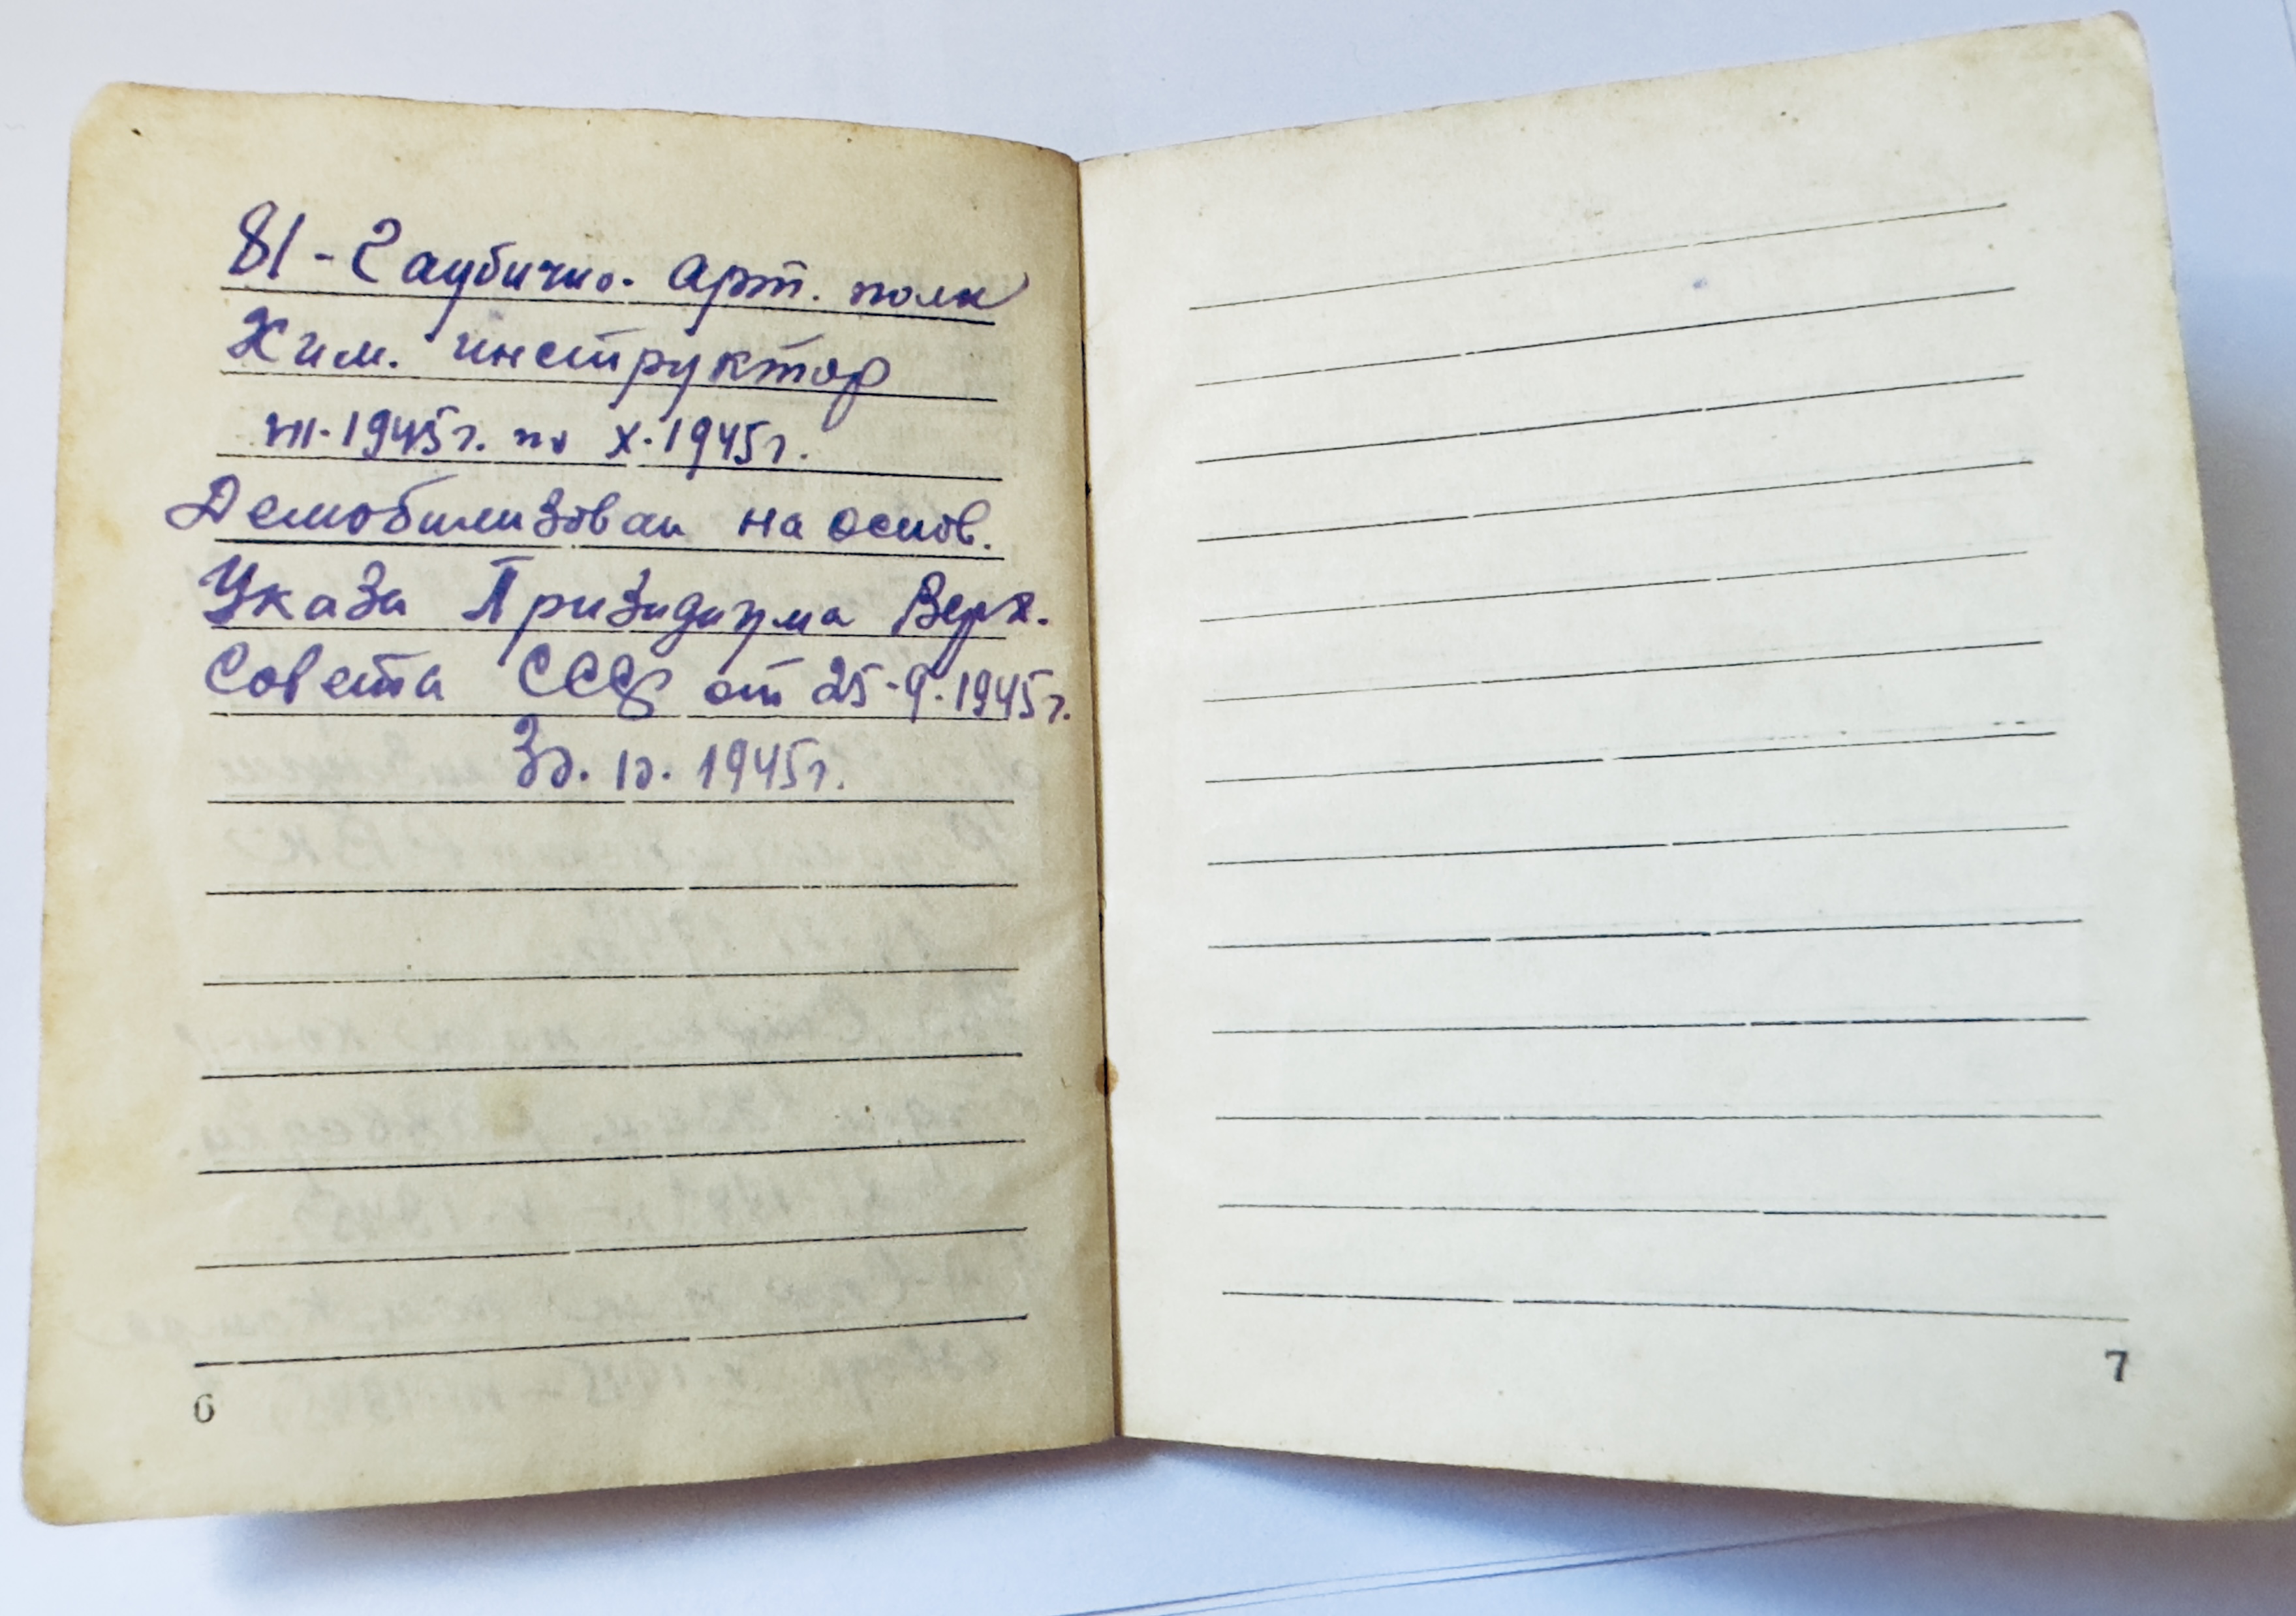 81 - Гаубично. Арт. полк
Хим. инструктор
VII·1945г. по X·1945г.
Демобилизован на основ.
Указа Призидиума Верх.
Совета СССР от 25·9·1945г.
30. 10. 1945г.
6
7